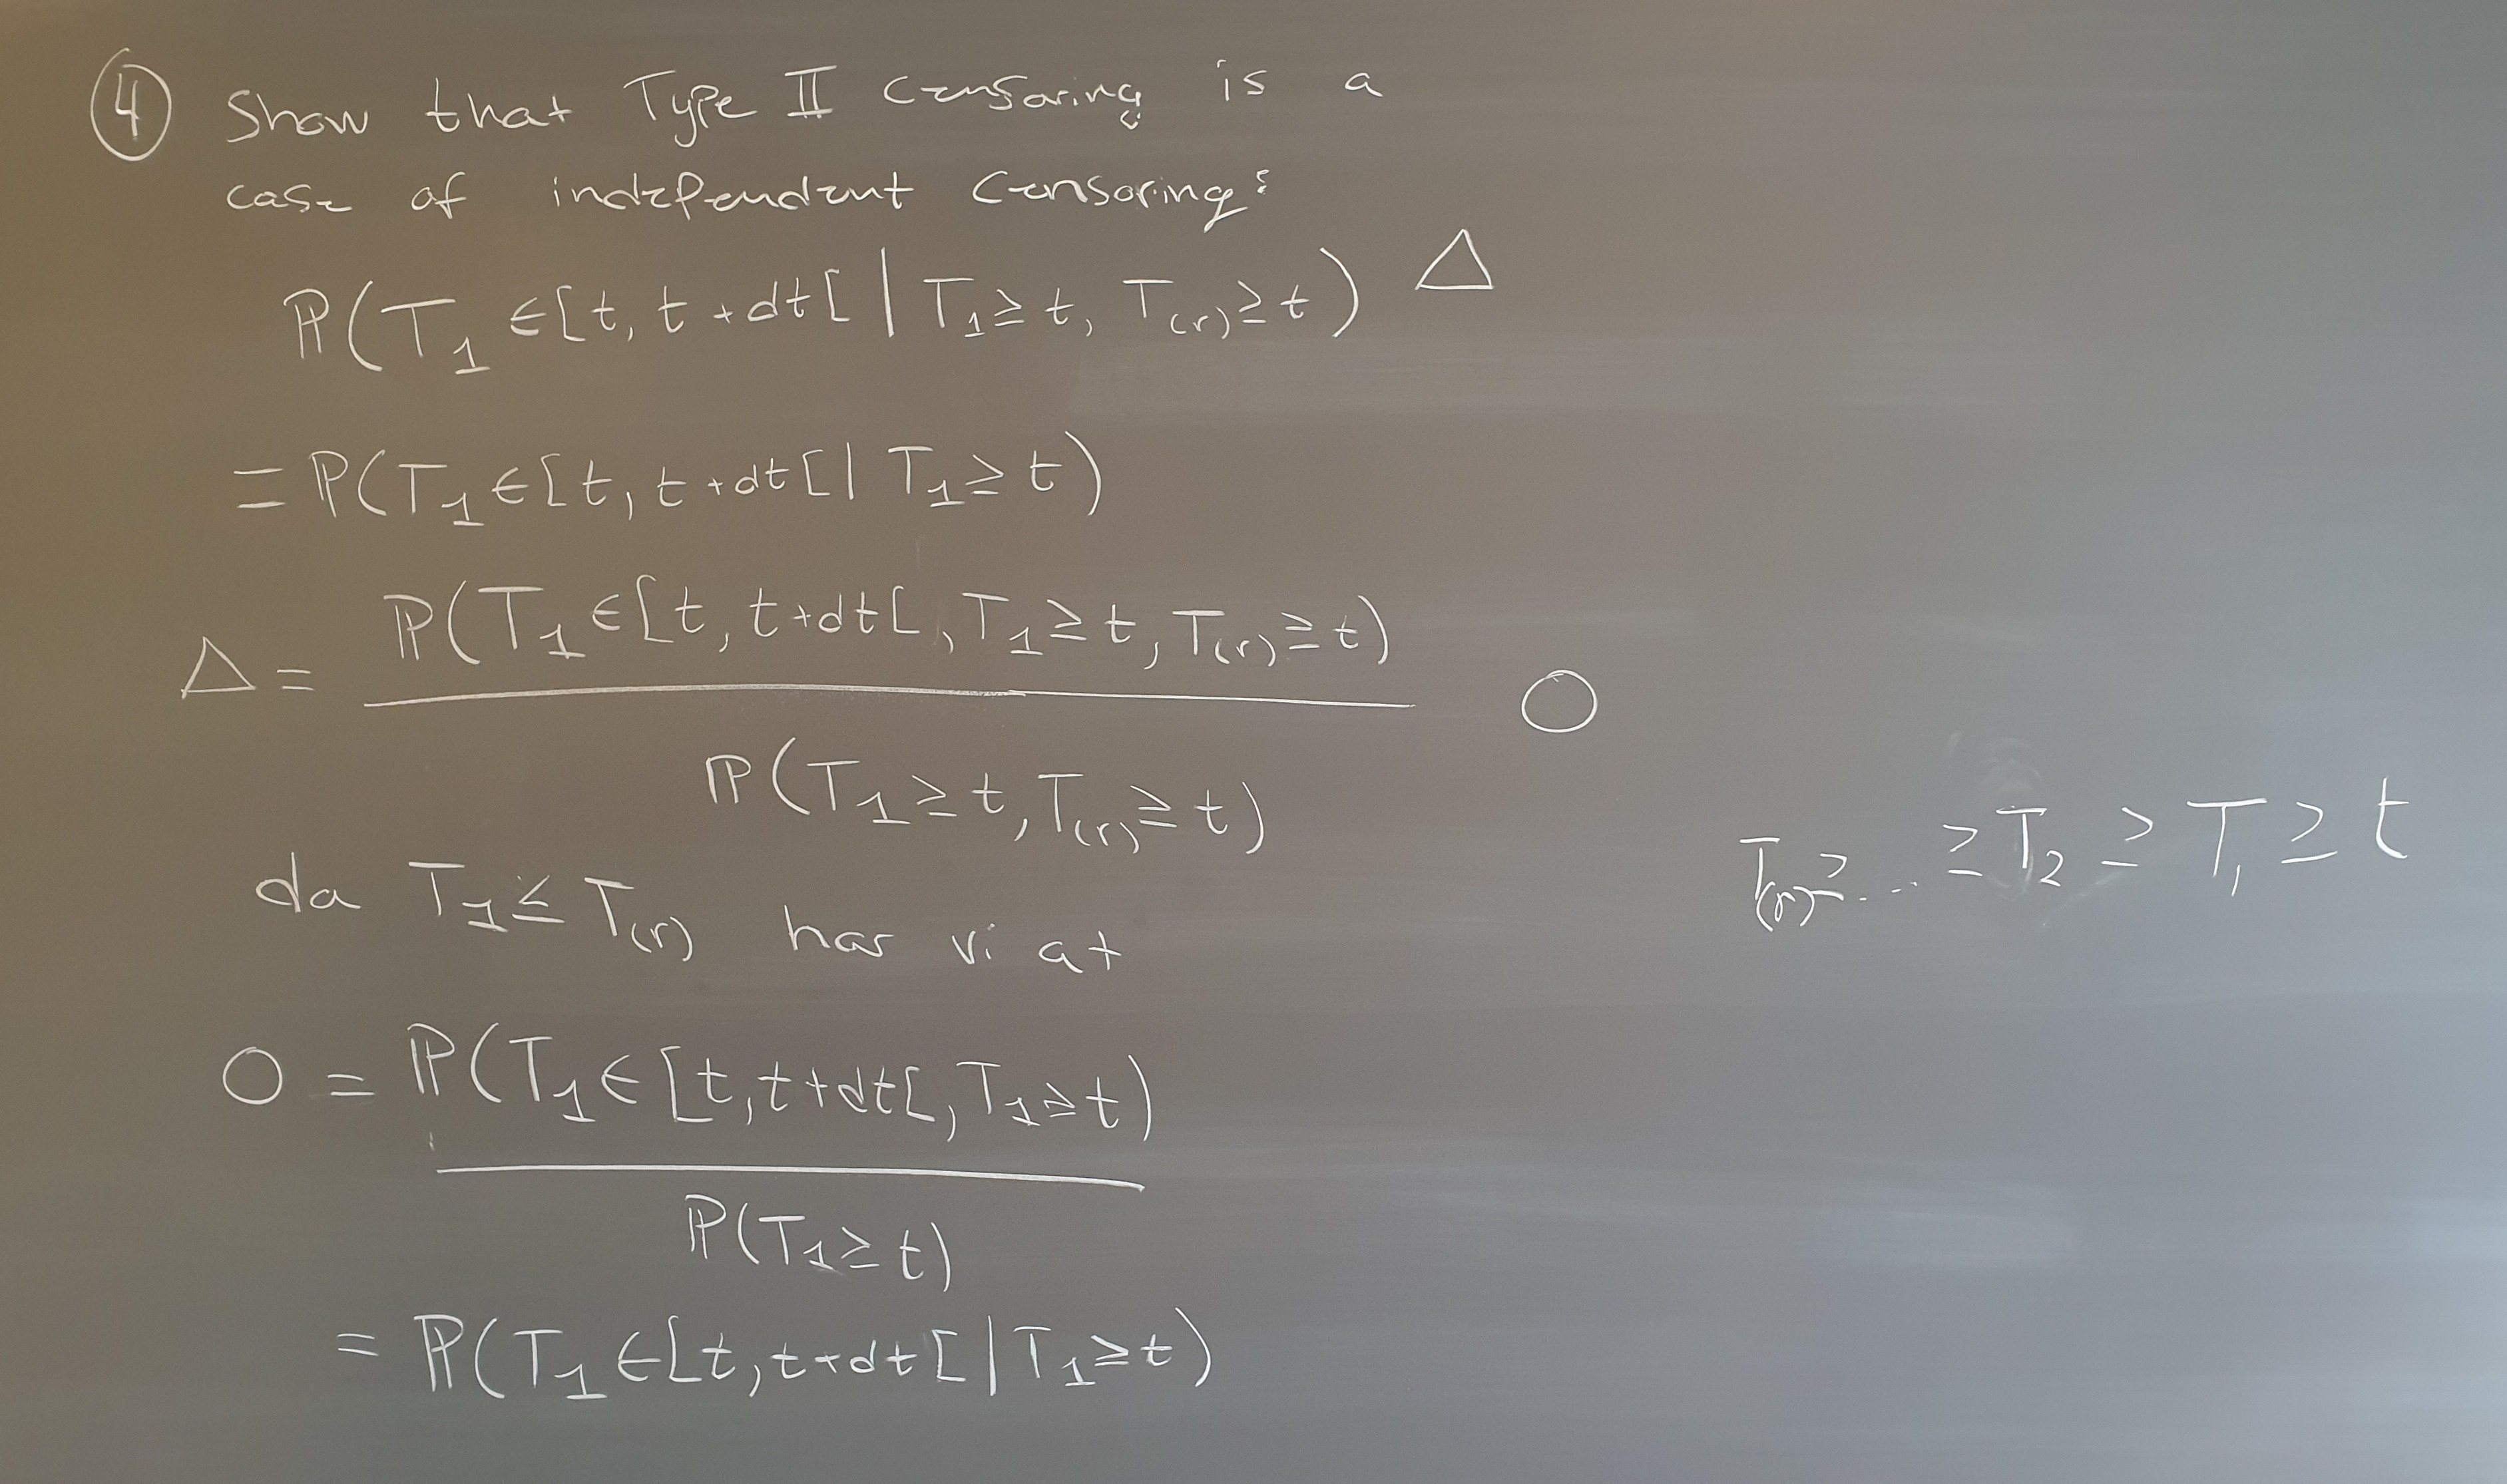 ④ Show that Type II censoring is a
case of independent censoring:
ℙ(T₁ ∈ [t, t+dt[ | T₁ ≥ t, T₍ᵣ₎ ≥ t) △
= ℙ(T₁ ∈ [t, t+dt[ | T₁ ≥ t)
△ = ℙ(T₁ ∈ [t, t+dt[, T₁ ≥ t, T₍ᵣ₎ ≥ t)
ℙ(T₁ ≥ t, T₍ᵣ₎ ≥ t)
○
da T₁ ≤ T₍ᵣ₎ har vi at
○ = ℙ(T₁ ∈ [t, t+dt[, T₁ ≥ t)
ℙ(T₁ ≥ t)
= ℙ(T₁ ∈ [t, t+dt[ | T₁ ≥ t)
T₍ᵣ₎ ≥ ... ≥ T₂ ≥ T₁ ≥ t